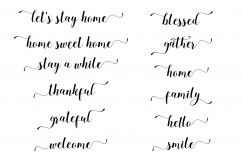 let's stay home
home sweet home
stay a while
thankful
grateful
welcome
blessed
gather
home
family
hello
smile